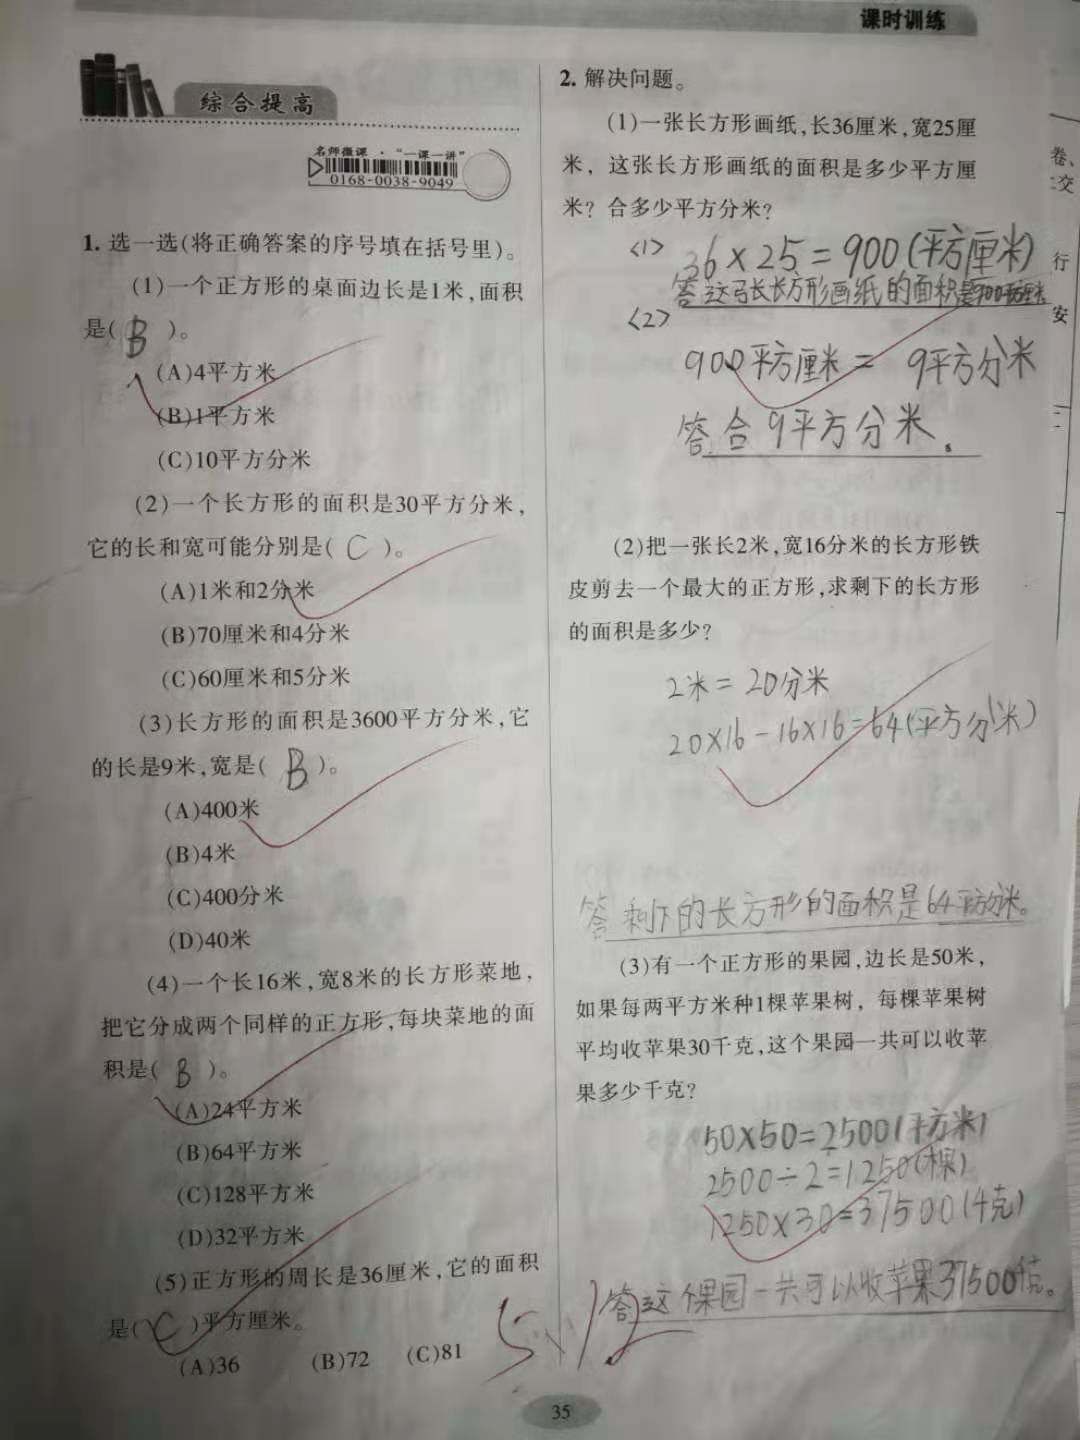 课时训练
综合提高
名师微课·“一课一讲”
0168-0038-9049
1. 选一选(将正确答案的序号填在括号里)。
(1)一个正方形的桌面边长是1米,面积
是( B )。
(A)4平方米
(B)1平方米
(C)10平方分米
(2)一个长方形的面积是30平方分米,
它的长和宽可能分别是( C )。
(A)1米和2分米
(B)70厘米和4分米
(C)60厘米和5分米
(3)长方形的面积是3600平方分米,它
的长是9米,宽是( B )。
(A)400米
(B)4米
(C)400分米
(D)40米
(4)一个长16米,宽8米的长方形菜地,
把它分成两个同样的正方形,每块菜地的面
积是( B )。
(A)24平方米
(B)64平方米
(C)128平方米
(D)32平方米
(5)正方形的周长是36厘米,它的面积
是( C )平方厘米。
(A)36 (B)72 (C)81
2. 解决问题。
(1)一张长方形画纸,长36厘米,宽25厘
米,这张长方形画纸的面积是多少平方厘
米?合多少平方分米?
<1> 36×25=900(平方厘米)
答这张长方形画纸的面积是900平方厘米
<2>
900平方厘米=9平方分米
答合9平方分米.
(2)把一张长2米,宽16分米的长方形铁
皮剪去一个最大的正方形,求剩下的长方形
的面积是多少?
2米=20分米
20×16-16×16=64(平方分米)
答剩下的长方形的面积是64平方分米。
(3)有一个正方形的果园,边长是50米,
如果每两平方米种1棵苹果树,每棵苹果树
平均收苹果30千克,这个果园一共可以收苹
果多少千克?
50×50=2500(平方米)
2500÷2=1250(棵)
1250×30=37500(千克)
答这个果园一共可以收苹果37500千克。
5.12
35
卷、
交
行
安